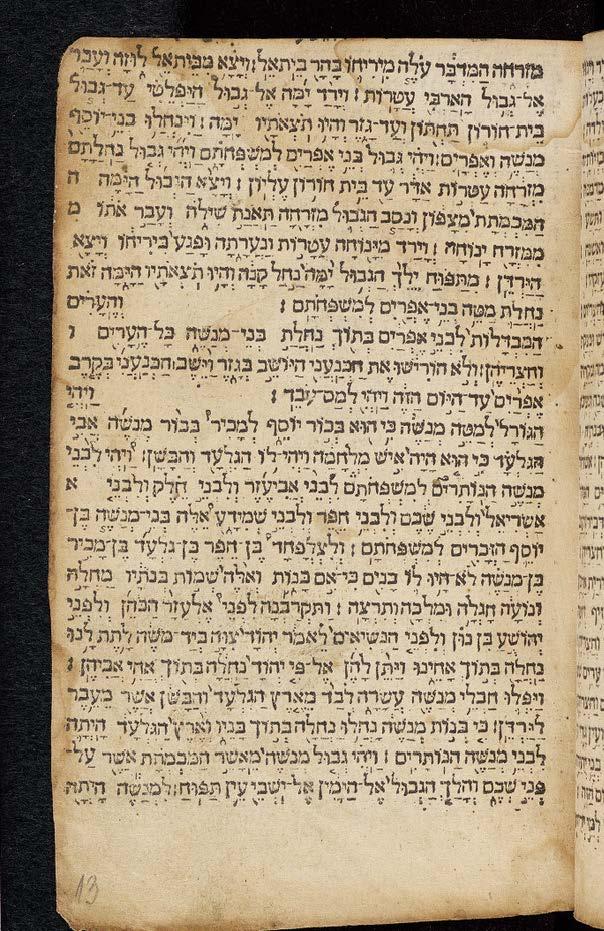 מזרחה המדבר עלה מיריחו בהר ביתאל׃ ויצא מביתאל לוזה ועבר
אל־גבול הארכי עטרות׃ וירד ימה אל־גבול היפלטי עד־גבול
בית־חורון תחתון ועד־גזר והיו תצאתיו ימה׃ וינחלו בני־יוסף
מנשה ואפרים׃ ויהי גבול בני אפרים למשפחתם ויהי גבול נחלתם
מזרחה עטרות אדר עד בית חורון עליון׃ ויצא הגבול הימה ה
המכמתת מצפון ונסב הגבול מזרחה תאנת שילה ועבר אתו מ
ממזרח ינוחה׃ וירד מינוחה עטרות ונערתה ופגע ביריחו ויצא
הירדן׃ מתפוח ילך הגבול ימה נחל קנה והיו תצאתיו הימה זאת
נחלת מטה בני־אפרים למשפחתם׃ והערים
המבדלות לבני אפרים בתוך נחלת בני־מנשה כל־הערים ו
וחצריהן׃ ולא הורישו את הכנעני היושב בגזר וישב הכנעני בקרב
אפרים עד־היום הזה ויהי למס־עבד׃ ויהי
הגורל למטה מנשה כי הוא בכור יוסף למכיר בכור מנשה אבי
הגלעד כי הוא היה איש מלחמה ויהי־לו הגלעד והבשן׃ ויהי לבני
מנשה הנותרים למשפחתם לבני אביעזר ולבני חלק ולבני א
אשריאל ולבני שכם ולבני חפר ולבני שמידע אלה בני־מנשה בן־
יוסף הזכרים למשפחתם׃ ולצלפחד בן־חפר בן־גלעד בן־מכיר
בן־מנשה לא־היו לו בנים כי־אם בנות ואלה שמות בנתיו מחלה
ונועה חגלה ומלכה ותרצה׃ ותקרבנה לפני אלעזר הכהן ולפני
יהושע בן־נון ולפני הנשיאים לאמר יהוד צוה ביד־משה לתת לנו
נחלה בתוך אחינו ויתן להן אל־פי יהוד נחלה בתוך אחי אביהן׃
ויפלו חבלי מנשה עשרה לבד מארץ הגלעד והבשן אשר מעבר
לירדן׃ כי בנות מנשה נחלו נחלה בתוך בניו וארץ הגלעד היתה
לבני מנשה הנותרים׃ ויהי גבול מנשה מאשר המכמתת אשר על־
פני שכם והלך הגבול אל־הימין אל־ישבי עין תפוח׃ למנשה היתה
13